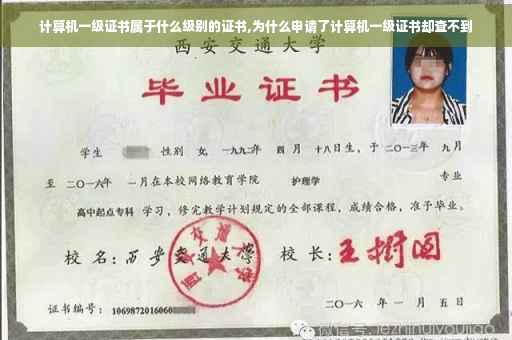 计算机一级证书属于什么级别的证书,为什么申请了计算机一级证书却查不到
西安交通大学
毕业证书
学生 性别 女, 一九九二年 四月 十八日生, 于二〇一三年 九月
至 二〇一六年 一月在本校网络教育学院 护理学 专业
高中起点专科 学习, 修完教学计划规定的全部课程, 成绩合格, 准予毕业。
校名: 西安交通大学 校长: 王树国
证书编号: 1069872016060
二〇一六年一月五日
微信号: jezhinuiyoujiao